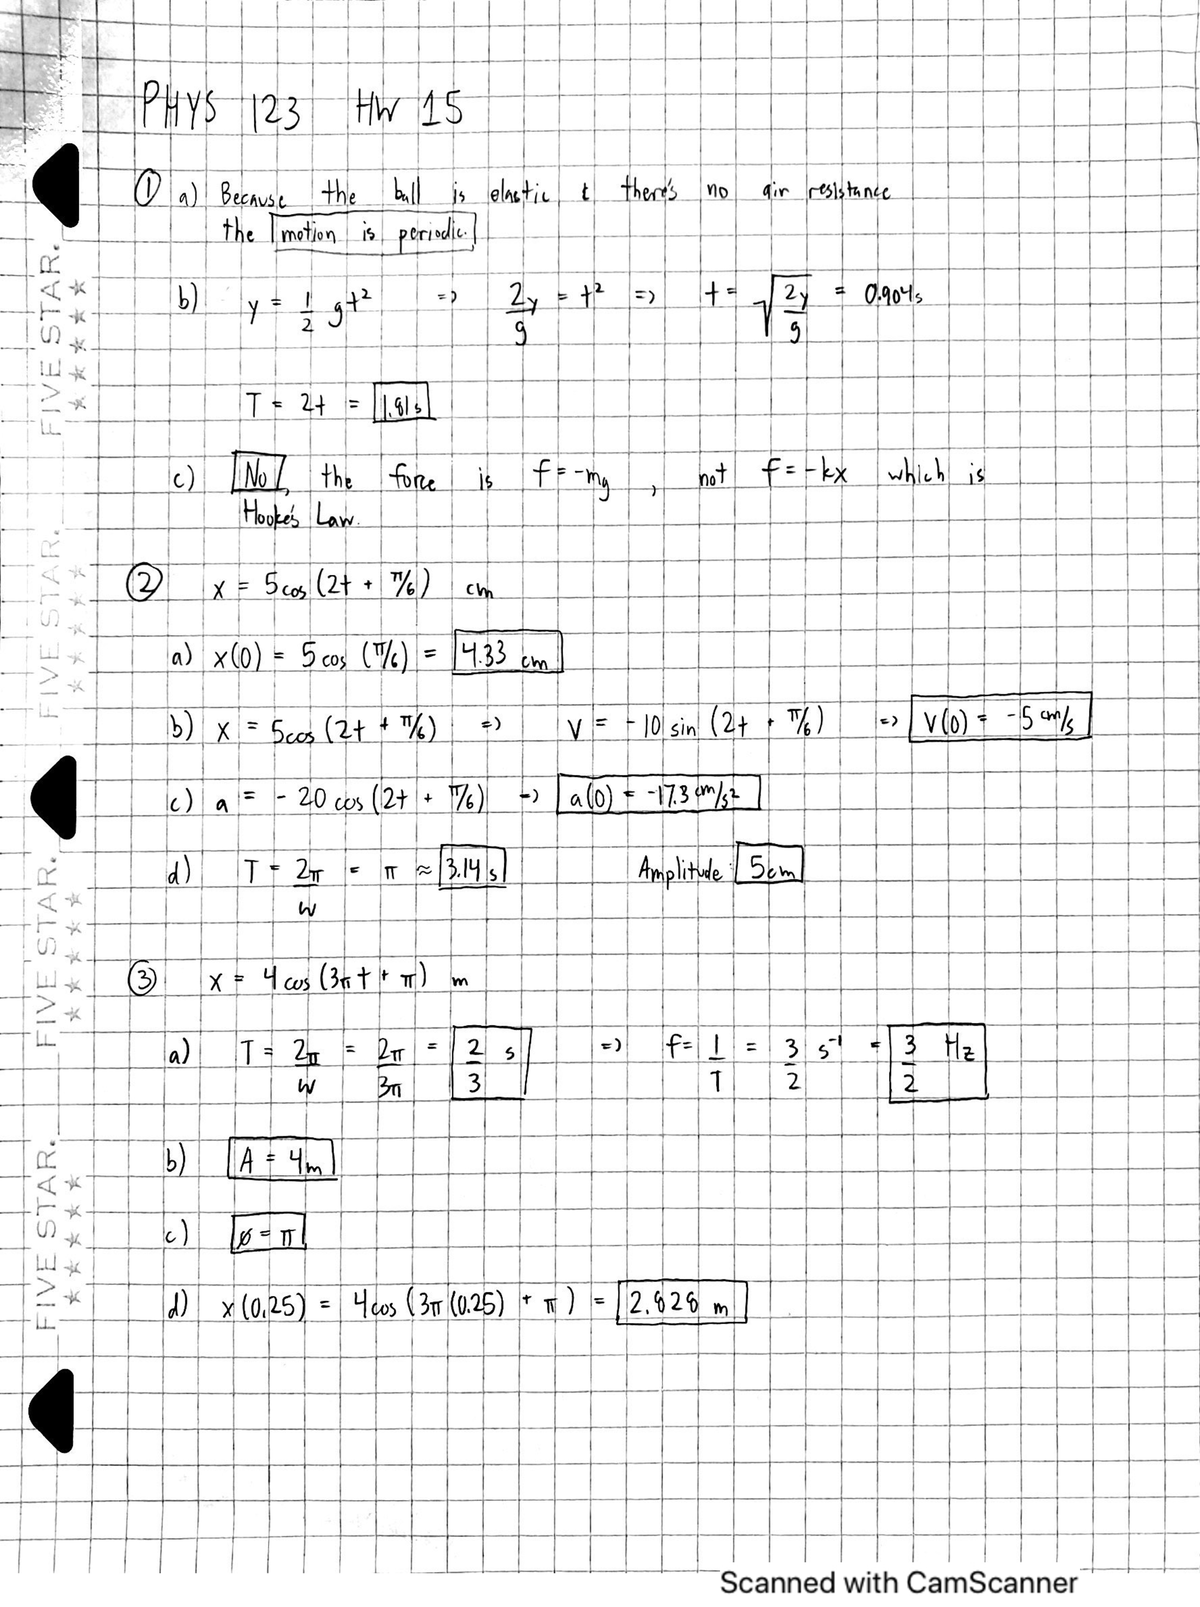 PHYS 123 HW 15
① a) Because the ball is elastic & there's no air resistance
the motion is periodic.
b) y = 1/2 gt² => 2y/g = t² => t = √(2y/g) = 0.904s
T = 2t = 1.81s
c) No, the force is f = -mg, not f = -kx which is
Hooke's Law.
② x = 5cos(2t + π/6) cm
a) x(0) = 5cos(π/6) = 4.33 cm
b) x = 5cos(2t + π/6) => v = -10 sin(2t + π/6) => v(0) = -5 cm/s
c) a = -20 cos(2t + π/6) => a(0) = -17.3 cm/s²
d) T = 2π/w = π ≈ 3.14 s Amplitude: 5cm
③ x = 4cos(3πt + π) m
a) T = 2π/w = 2π/3π = 2/3 s => f = 1/T = 3/2 s⁻¹ = 3/2 Hz
b) A = 4m
c) ø = π
d) x(0.25) = 4cos(3π(0.25) + π) = 2.828 m
FIVE STAR.
FIVE STAR.
FIVE STAR.
FIVE STAR.
Scanned with CamScanner